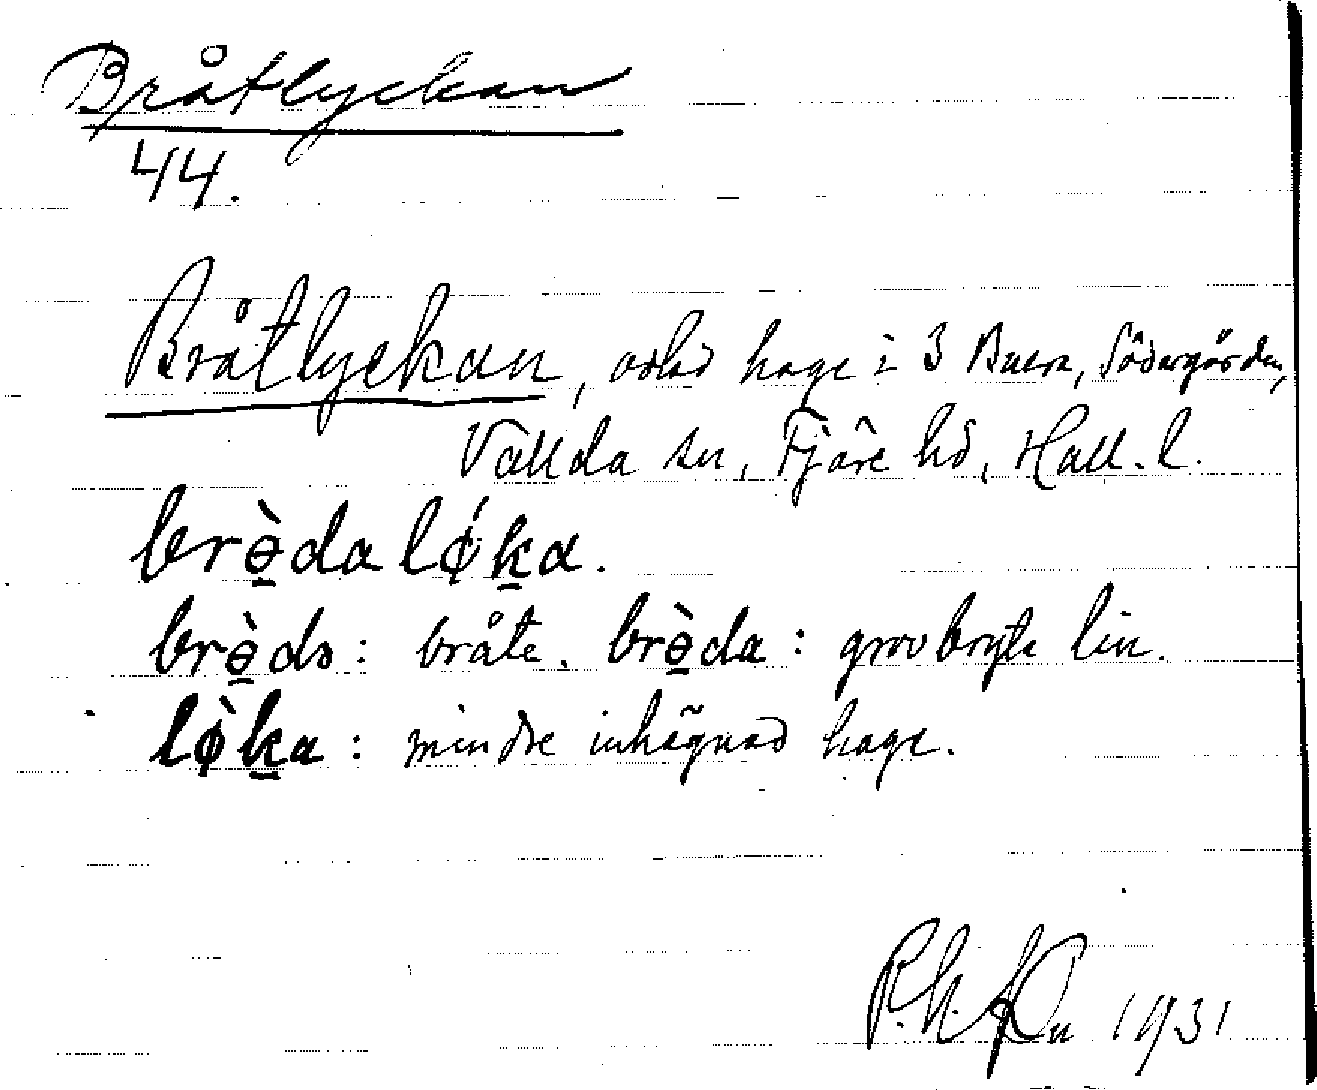 Bråtlyckan
44.
Bråtlyckan, odlad hage i 3 Buera, Södergården,
Vallda sn, Fjäre hd, Hall. l.
brɵ̠̀da lǿk̠a.
brɵ̠̀də: bråte. brɵ̠̀da: grovbryta lin.
lø̀k̠a: mindre inhägnad hage.
P. h. 1931